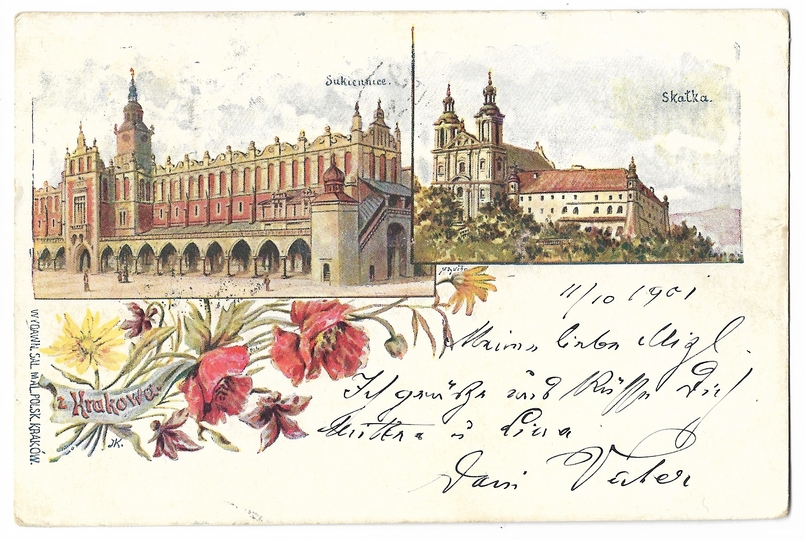 Sukiennice.
Skałka.
z Krakowa.
JK.
WYDAWN. SAL. MAL. POLSK. KRAKÓW.
11/10 1901
Meine liebe Migl.
Ich grüße und küsse Dich
Mutter u Lina
Dein Vater